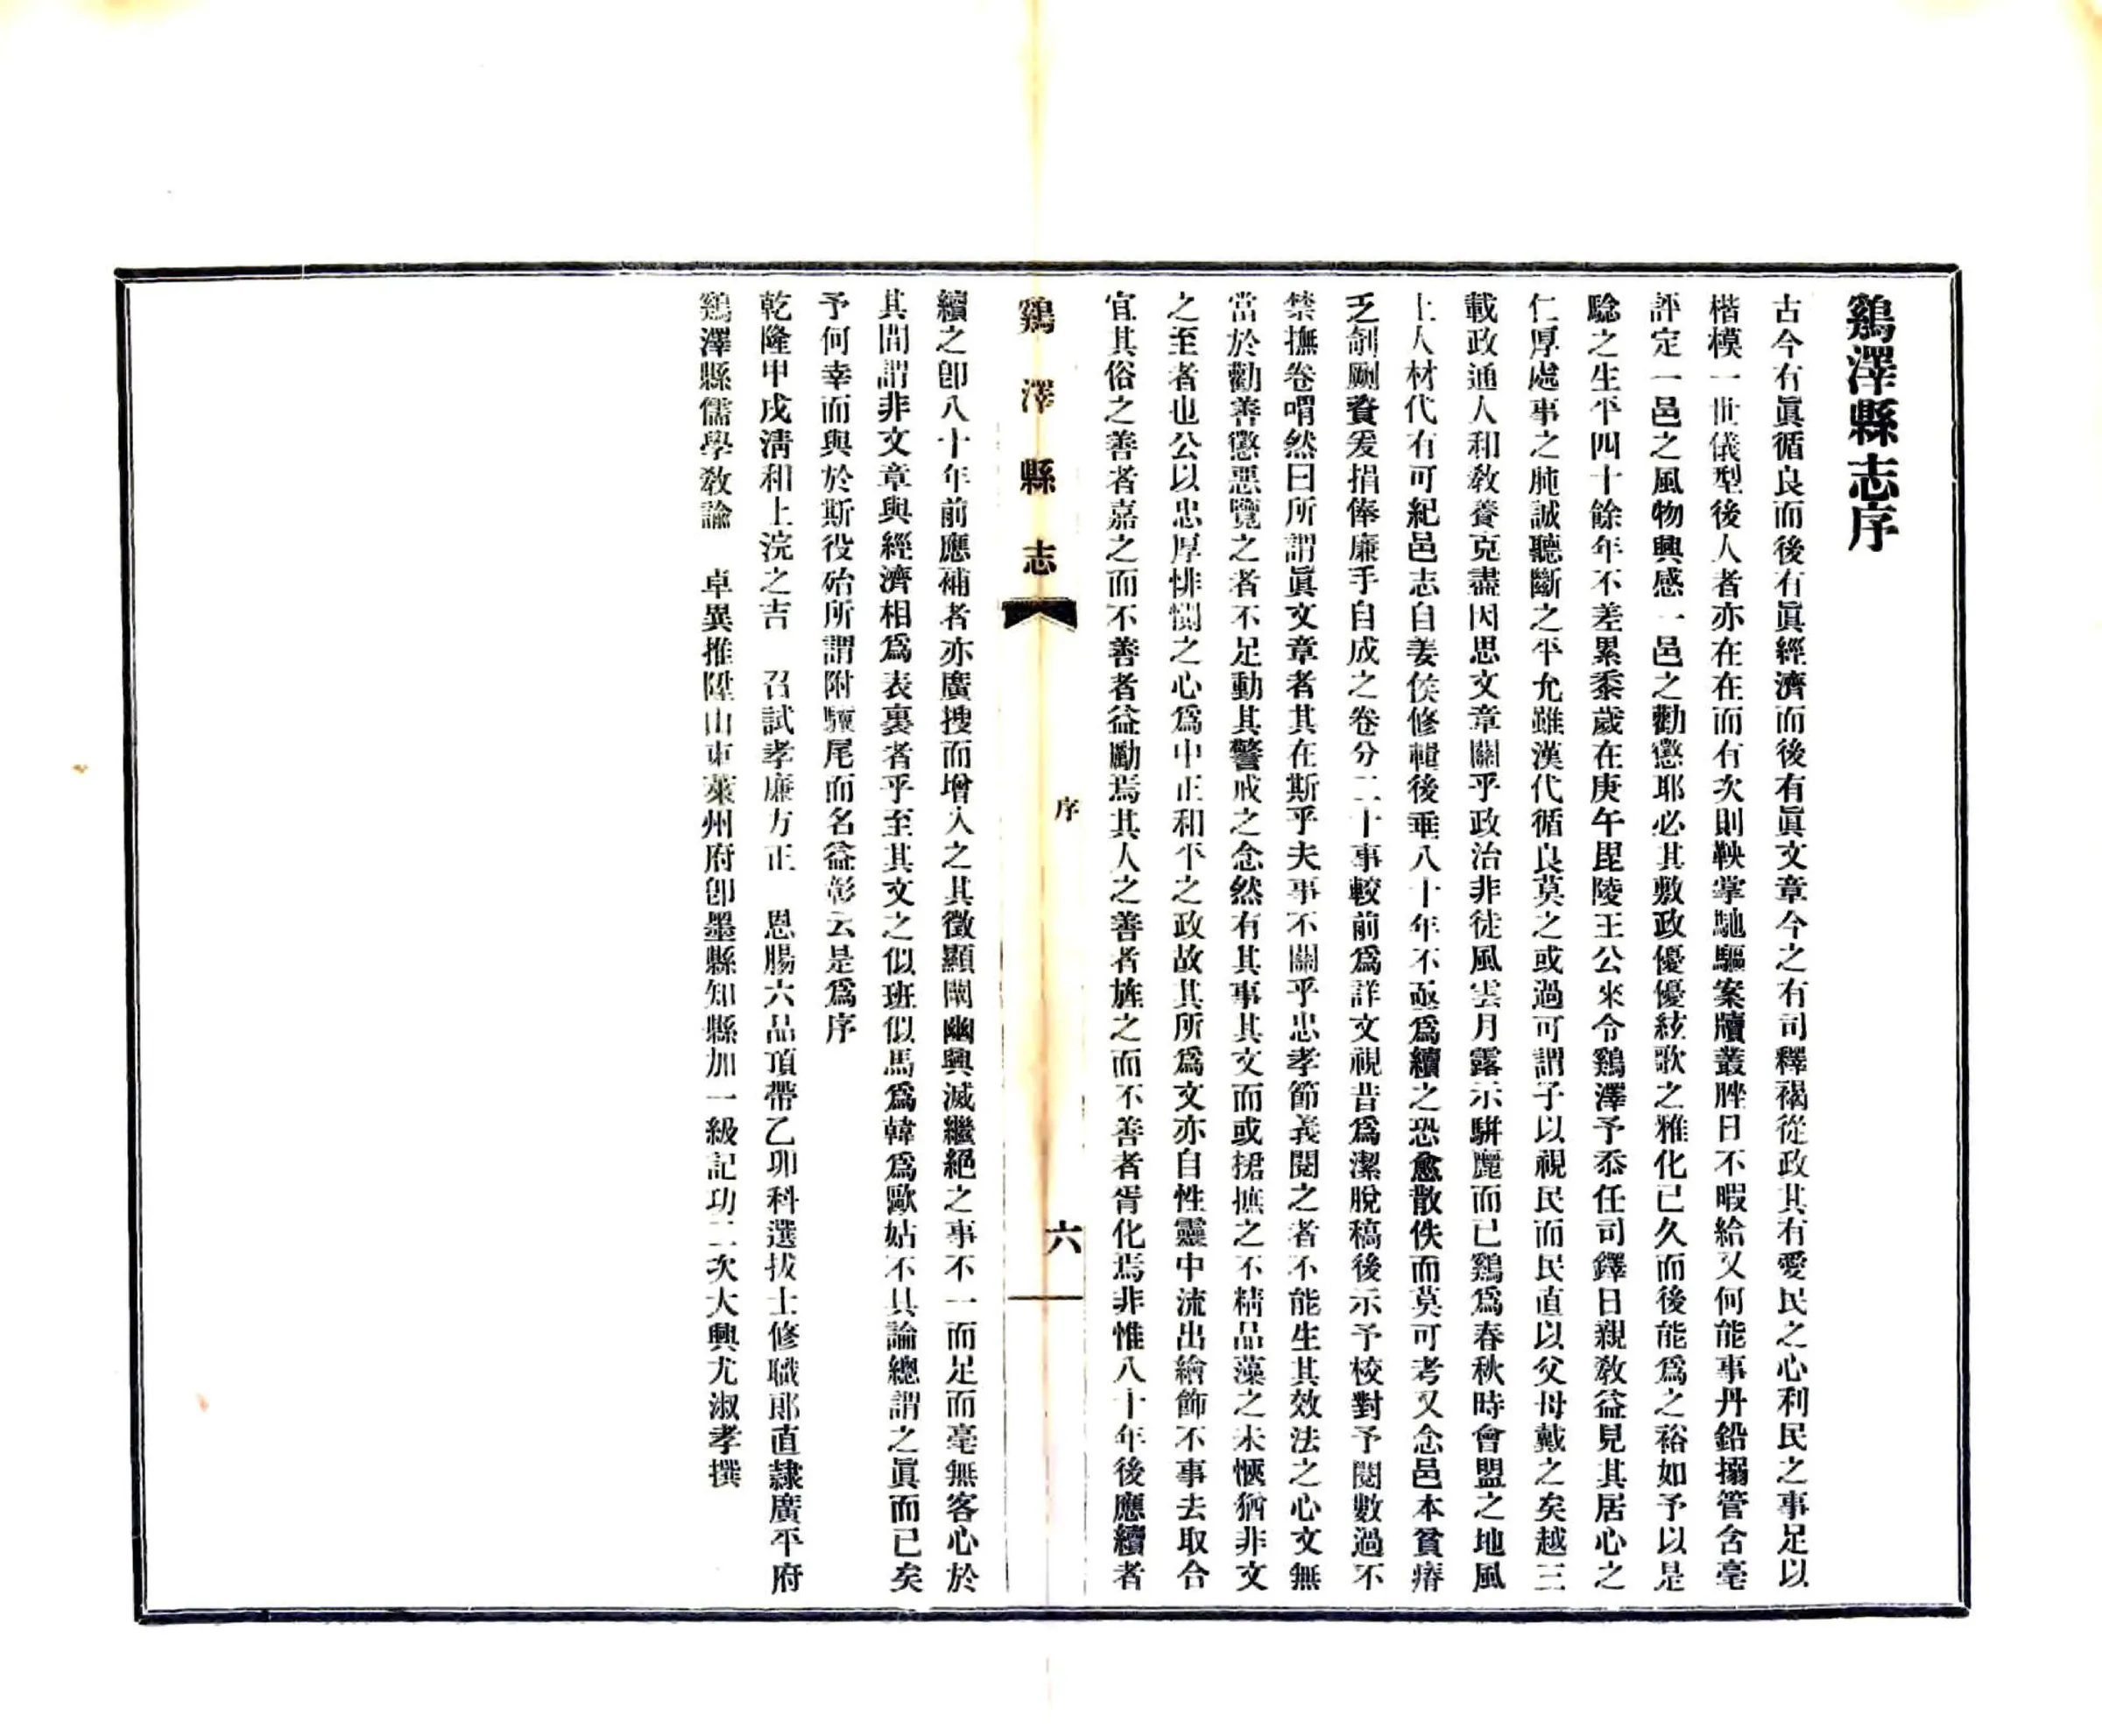 鷄澤縣志序
古今有眞循良而後有眞經濟而後有眞文章今之有司釋褐從政其有愛民之心利民之事足以
楷模一世儀型後人者亦在在而有次則鞅掌馳驅案牘叢脞日不暇給又何能事丹鉛搦管含毫
評定一邑之風物興感一邑之勸懲耶必其敷政優優絃歌之雅化已久而後能爲之裕如予以是
驗之生平四十餘年不差累黍歲在庚午毘陵王公來令鷄澤予忝任司鐸日親敎益見其居心之
仁厚處事之肫誠聽斷之平允雖漢代循良莫之或過可謂子以視民而民直以父母戴之矣越三
載政通人和敎養克盡因思文章關乎政治非徒風雲月露示駢麗而已鷄爲春秋時會盟之地風
土人材代有可紀邑志自姜侯修輯後垂八十年不亟爲續之恐愈散佚而莫可考又念邑本貧瘠
乏剞劂資爰捐俸廉手自成之卷分二十事較前爲詳文視昔爲潔脫稿後示予校對予閱數過不
禁撫卷喟然曰所謂眞文章者其在斯乎夫事不關乎忠孝節義閱之者不能生其效法之心文無
當於勸善懲惡覽之者不足動其警戒之念然有其事其文而或捃摭之不精品藻之未愜猶非文
之至者也公以忠厚悱惻之心爲中正和平之政故其所爲文亦自性靈中流出繪飾不事去取合
宜其俗之善者嘉之而不善者益勵焉其人之善者旌之而不善者胥化焉非惟八十年後應續者
鷄澤縣志
序
六
續之卽八十年前應補者亦廣搜而增入之其徵顯闡幽興滅繼絕之事不一而足而毫無客心於
其間謂非文章與經濟相爲表裏者乎至其文之似班似馬爲韓爲歐姑不具論總謂之眞而已矣
予何幸而與於斯役殆所謂附驥尾而名益彰云是爲序
乾隆甲戌淸和上浣之吉　召試孝廉方正　恩賜六品頂帶乙卯科選拔士修職郎直隸廣平府
鷄澤縣儒學敎諭　卓異推陞山東萊州府卽墨縣知縣加一級記功二次大興尤淑孝撰